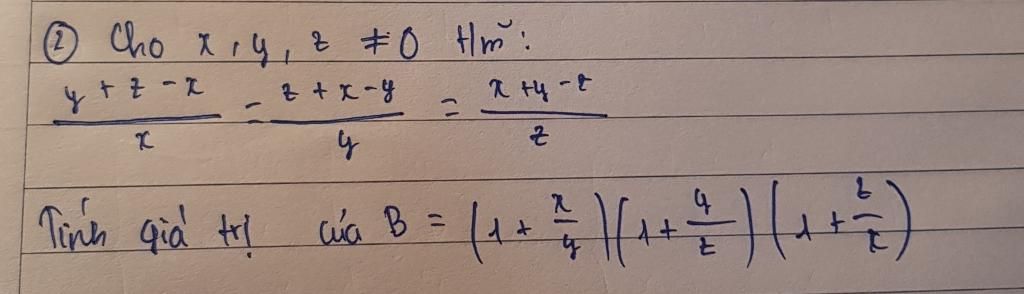 ② Cho x, y, z ≠ 0 t/m̃:
(y + z - x)/x = (z + x - y)/y = (x + y - z)/z
Tính giá trị của B = (1 + x/y)(1 + y/z)(1 + z/x)